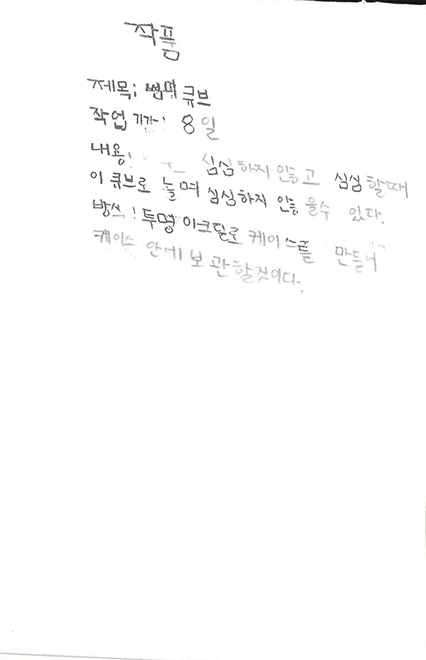 작품
제목; 썬더 큐브
작업 기간! 8일
내용! 심심하지 안항고 심심 할때
이 큐브로 놀며 심심하지 안항 을수 있다.
방쓰! 투명 아크릴로 케이스를 만들어
케이스 안에 보관할것이다.